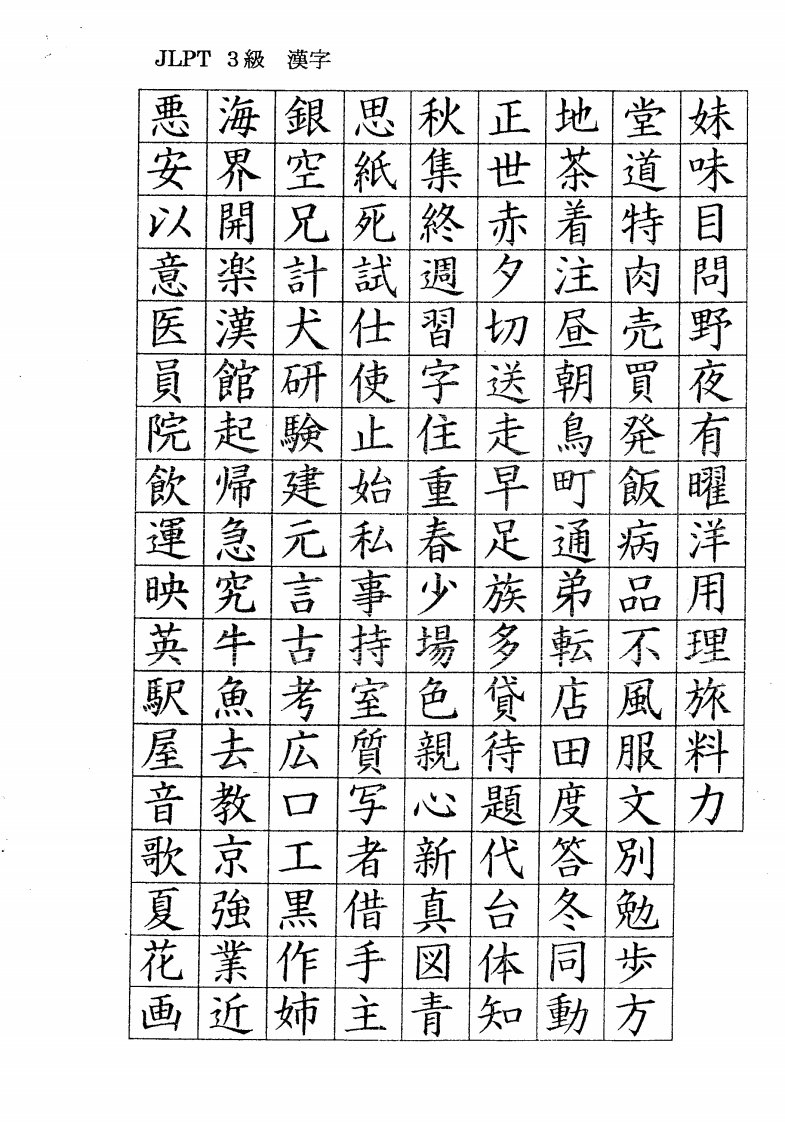 JLPT 3級 漢字
悪 海 銀 思 秋 正 地 堂 妹
安 界 空 紙 集 世 茶 道 味
以 開 兄 死 終 赤 着 特 目
意 楽 計 試 週 夕 注 肉 問
医 漢 犬 仕 習 切 昼 売 野
員 館 研 使 字 送 朝 買 夜
院 起 験 止 住 走 鳥 発 有
飲 帰 建 始 重 早 町 飯 曜
運 急 元 私 春 足 通 病 洋
映 究 言 事 少 族 弟 品 用
英 牛 古 持 場 多 転 不 理
駅 魚 考 室 色 貸 店 風 旅
屋 去 広 質 親 待 田 服 料
音 教 口 写 心 題 度 文 力
歌 京 工 者 新 代 答 別
夏 強 黒 借 真 台 冬 勉
花 業 作 手 図 体 同 歩
画 近 姉 主 青 知 動 方